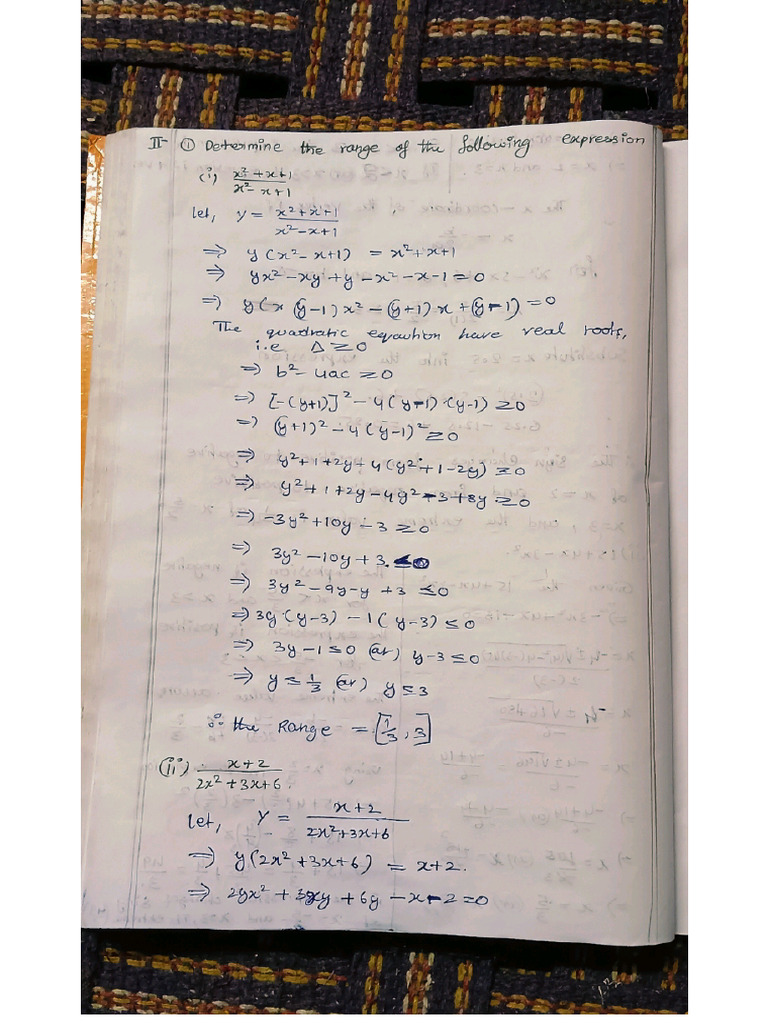 II- ① Determine the range of the following expression
(i) x²+x+1 / x²-x+1
let, y = x²+x+1 / x²-x+1
⇒ y(x²-x+1) = x²+x+1
⇒ yx²-xy+y-x²-x-1=0
⇒ y(x (y-1)x²-(y+1)x+(y-1)=0
The quadratic eqaution have real roots,
i.e Δ≥0
⇒ b²-4ac≥0
⇒ [-(y+1)]²-4(y-1)·(y-1)≥0
⇒ (y+1)²-4(y-1)²≥0
⇒ y²+1+2y-4(y²+1-2y)≥0
⇒ y²+1+2y-4y²-3+8y≥0
⇒ -3y²+10y-3≥0
⇒ 3y²-10y+3≤0
⇒ 3y²-9y-y+3≤0
⇒ 3y(y-3)-1(y-3)≤0
⇒ 3y-1≤0 (or) y-3≤0
⇒ y≤1/3 (or) y≤3
∴ the Range = [1/3, 3]
(ii) x+2 / 2x²+3x+6.
let, y = x+2 / 2x²+3x+6
⇒ y(2x²+3x+6) = x+2.
⇒ 2yx²+3xy+6y-x-2=0